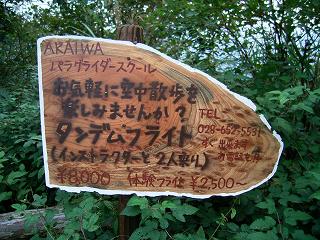 ARAIWA
パラグライダースクール
お気軽に空中散歩を
楽しみませんか?
タンデムフライト
(インストラクターと2人乗り)
¥8,000 体験フライト ¥2,500~
TEL
028-652-5531